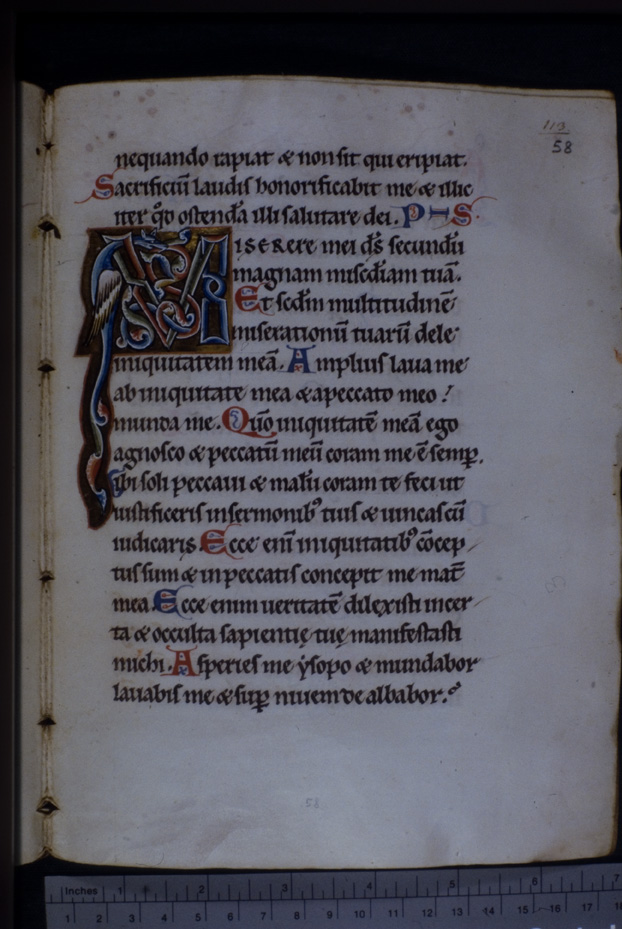 113
58
nequando rapiat & non sit qui eripiat.
Sacrificiū laudis honorificabit me & illic
iter q̊o ostendā illi salutare dei. PS
Miserere mei d̄s secundū
magnam misc̄diam tuā.
Et scd̄m multitudinē
miserationū tuarū dele
iniquitatem meā. Amplius laua me
ab iniquitate mea & a peccato meo
munda me. Qūo iniquitatē meā ego
agnosco & peccatū meū coram me ē semꝑ.
Tibi soli peccaui & malū coram te feci ut
iustificeris in sermonibꝰ tuis & uincas cū
iudicaris. Ecce enī iniquitatibꝰ cōcep
tus sum & in peccatis concepit me mat̄
mea. Ecce enim ueritatē dilexisti incer
ta & occulta sapientię tuę manifestasti
michi. Asperies me ẏsopo & mundabor
lauabis me & suꝑ niuem de albabor.
58
Inches 1 2 3 4 5 6 7
1 2 3 4 5 6 7 8 9 10 11 12 13 14 15 16 17 18